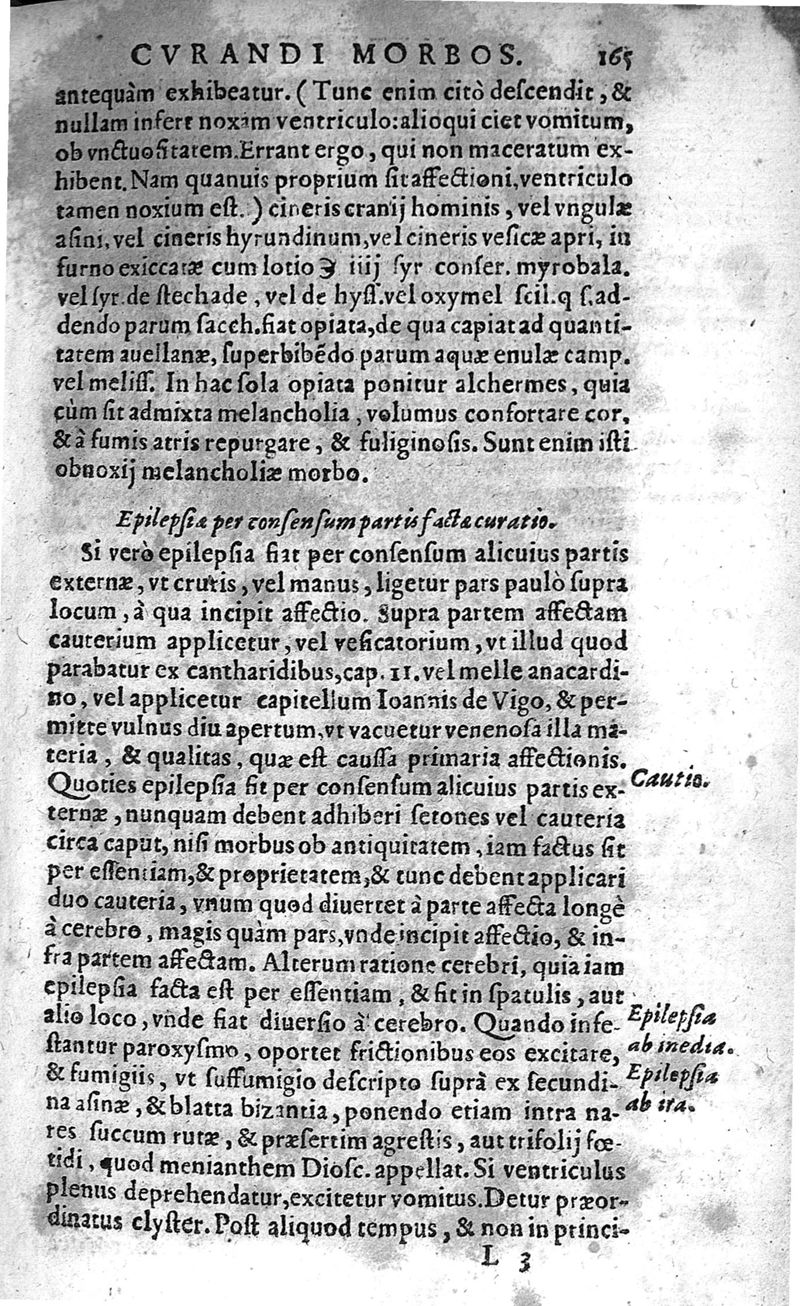 CVRANDI MORBOS. 165
antequàm exhibeatur. (Tunc enim citò deſcendit, &
nullam infert noxam ventriculo: alioqui ciet vomitum,
ob vnctuoſitatem. Errant ergo, qui non maceratum ex-
hibent. Nam quanuis proprium ſit affectioni, ventriculo
tamen noxium eſt.) cineris cranij hominis, vel vngulæ
aſini, vel cineris hyrundinum, vel cineris veſicæ apri, in
furno exiccatæ cum lotio ℥ iiij ſyr conſer. myrobala.
vel ſyr. de ſtechade, vel de hyſſ. vel oxymel ſcil. q ſ. ad-
dendo parum ſacch. fiat opiata, de qua capiat ad quanti-
tatem auellanæ, ſuperbibēdo parum aquæ enulæ camp.
vel meliſſ. In hac ſola opiata ponitur alchermes, quia
cùm ſit admixta melancholia, volumus confortare cor,
& à fumis atris repurgare, & fuliginoſis. Sunt enim iſti
obnoxij melancholiæ morbo.
Epilepſiæ per conſenſum partis factæ curatio.
Si verò epilepſia fiat per conſenſum alicuius partis
externæ, vt cruris, vel manus, ligetur pars paulò ſupra
locum, à qua incipit affectio. Supra partem affectam
cauterium applicetur, vel veſicatorium, vt illud quod
parabatur ex cantharidibus, cap. 11. vel melle anacardi-
no, vel applicetur capitellum Ioannis de Vigo, & per-
mitte vulnus diu apertum, vt vacuetur venenoſa illa ma-
teria, & qualitas, quæ eſt cauſſa primaria affectionis.
Quoties epilepſia fit per conſenſum alicuius partis ex- Cautio.
ternæ, nunquam debent adhiberi ſetones vel cauteria
circa caput, niſi morbus ob antiquitatem, iam factus ſit
per eſſentiam, & proprietatem, & tunc debent applicari
duo cauteria, vnum quod diuertet à parte affecta longè
à cerebro, magis quàm pars, vnde incipit affectio, & in-
fra partem affectam. Alterum ratione cerebri, quia iam
epilepſia facta eſt per eſſentiam, & fit in ſpatulis, aut
alio loco, vnde fiat diuerſio à cerebro. Quando infe- Epilepſia
ſtantur paroxyſmo, oportet frictionibus eos excitare, ab inedia.
& fumigiis, vt ſuffumigio deſcripto ſuprà ex ſecundi- Epilepſia
na aſinæ, & blatta bizantia, ponendo etiam intra na- ab ira.
res ſuccum rutæ, & præſertim agreſtis, aut trifolij fœ-
tidi, quod menianthem Dioſc. appellat. Si ventriculus
plenus deprehendatur, excitetur vomitus. Detur præor-
dinatus clyſter. Poſt aliquod tempus, & non in princi-
L 3